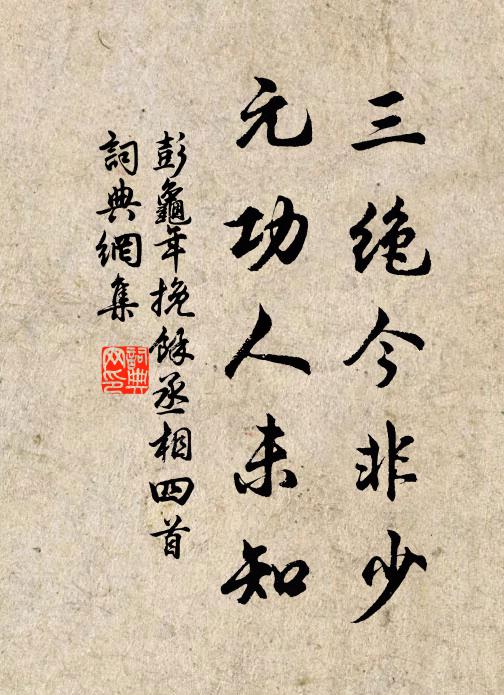 三绝今非少
元功人未知
彭龜年挽餘丞相四首
詞典網集
詞典网印